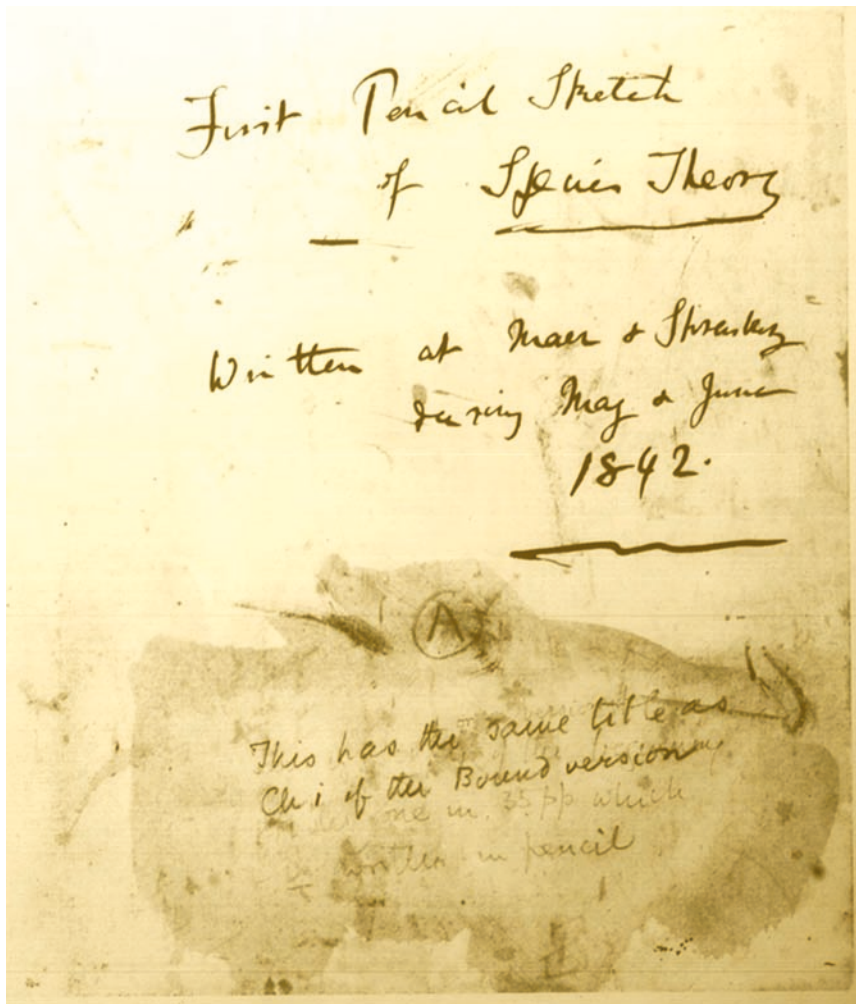 First Pencil Sketch
of Species Theory
Written at Maer & Shrewsbury
during May & June
1842.
A
This has the same title as
Ch i of the Bound version
one in 35 pp which
written in pencil